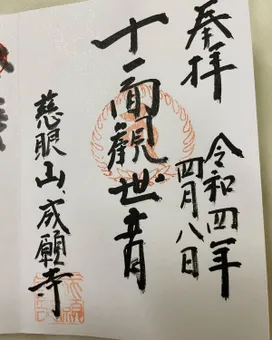 奉拝
令和四年
四月八日
十一面観世音
慈眼山成願寺